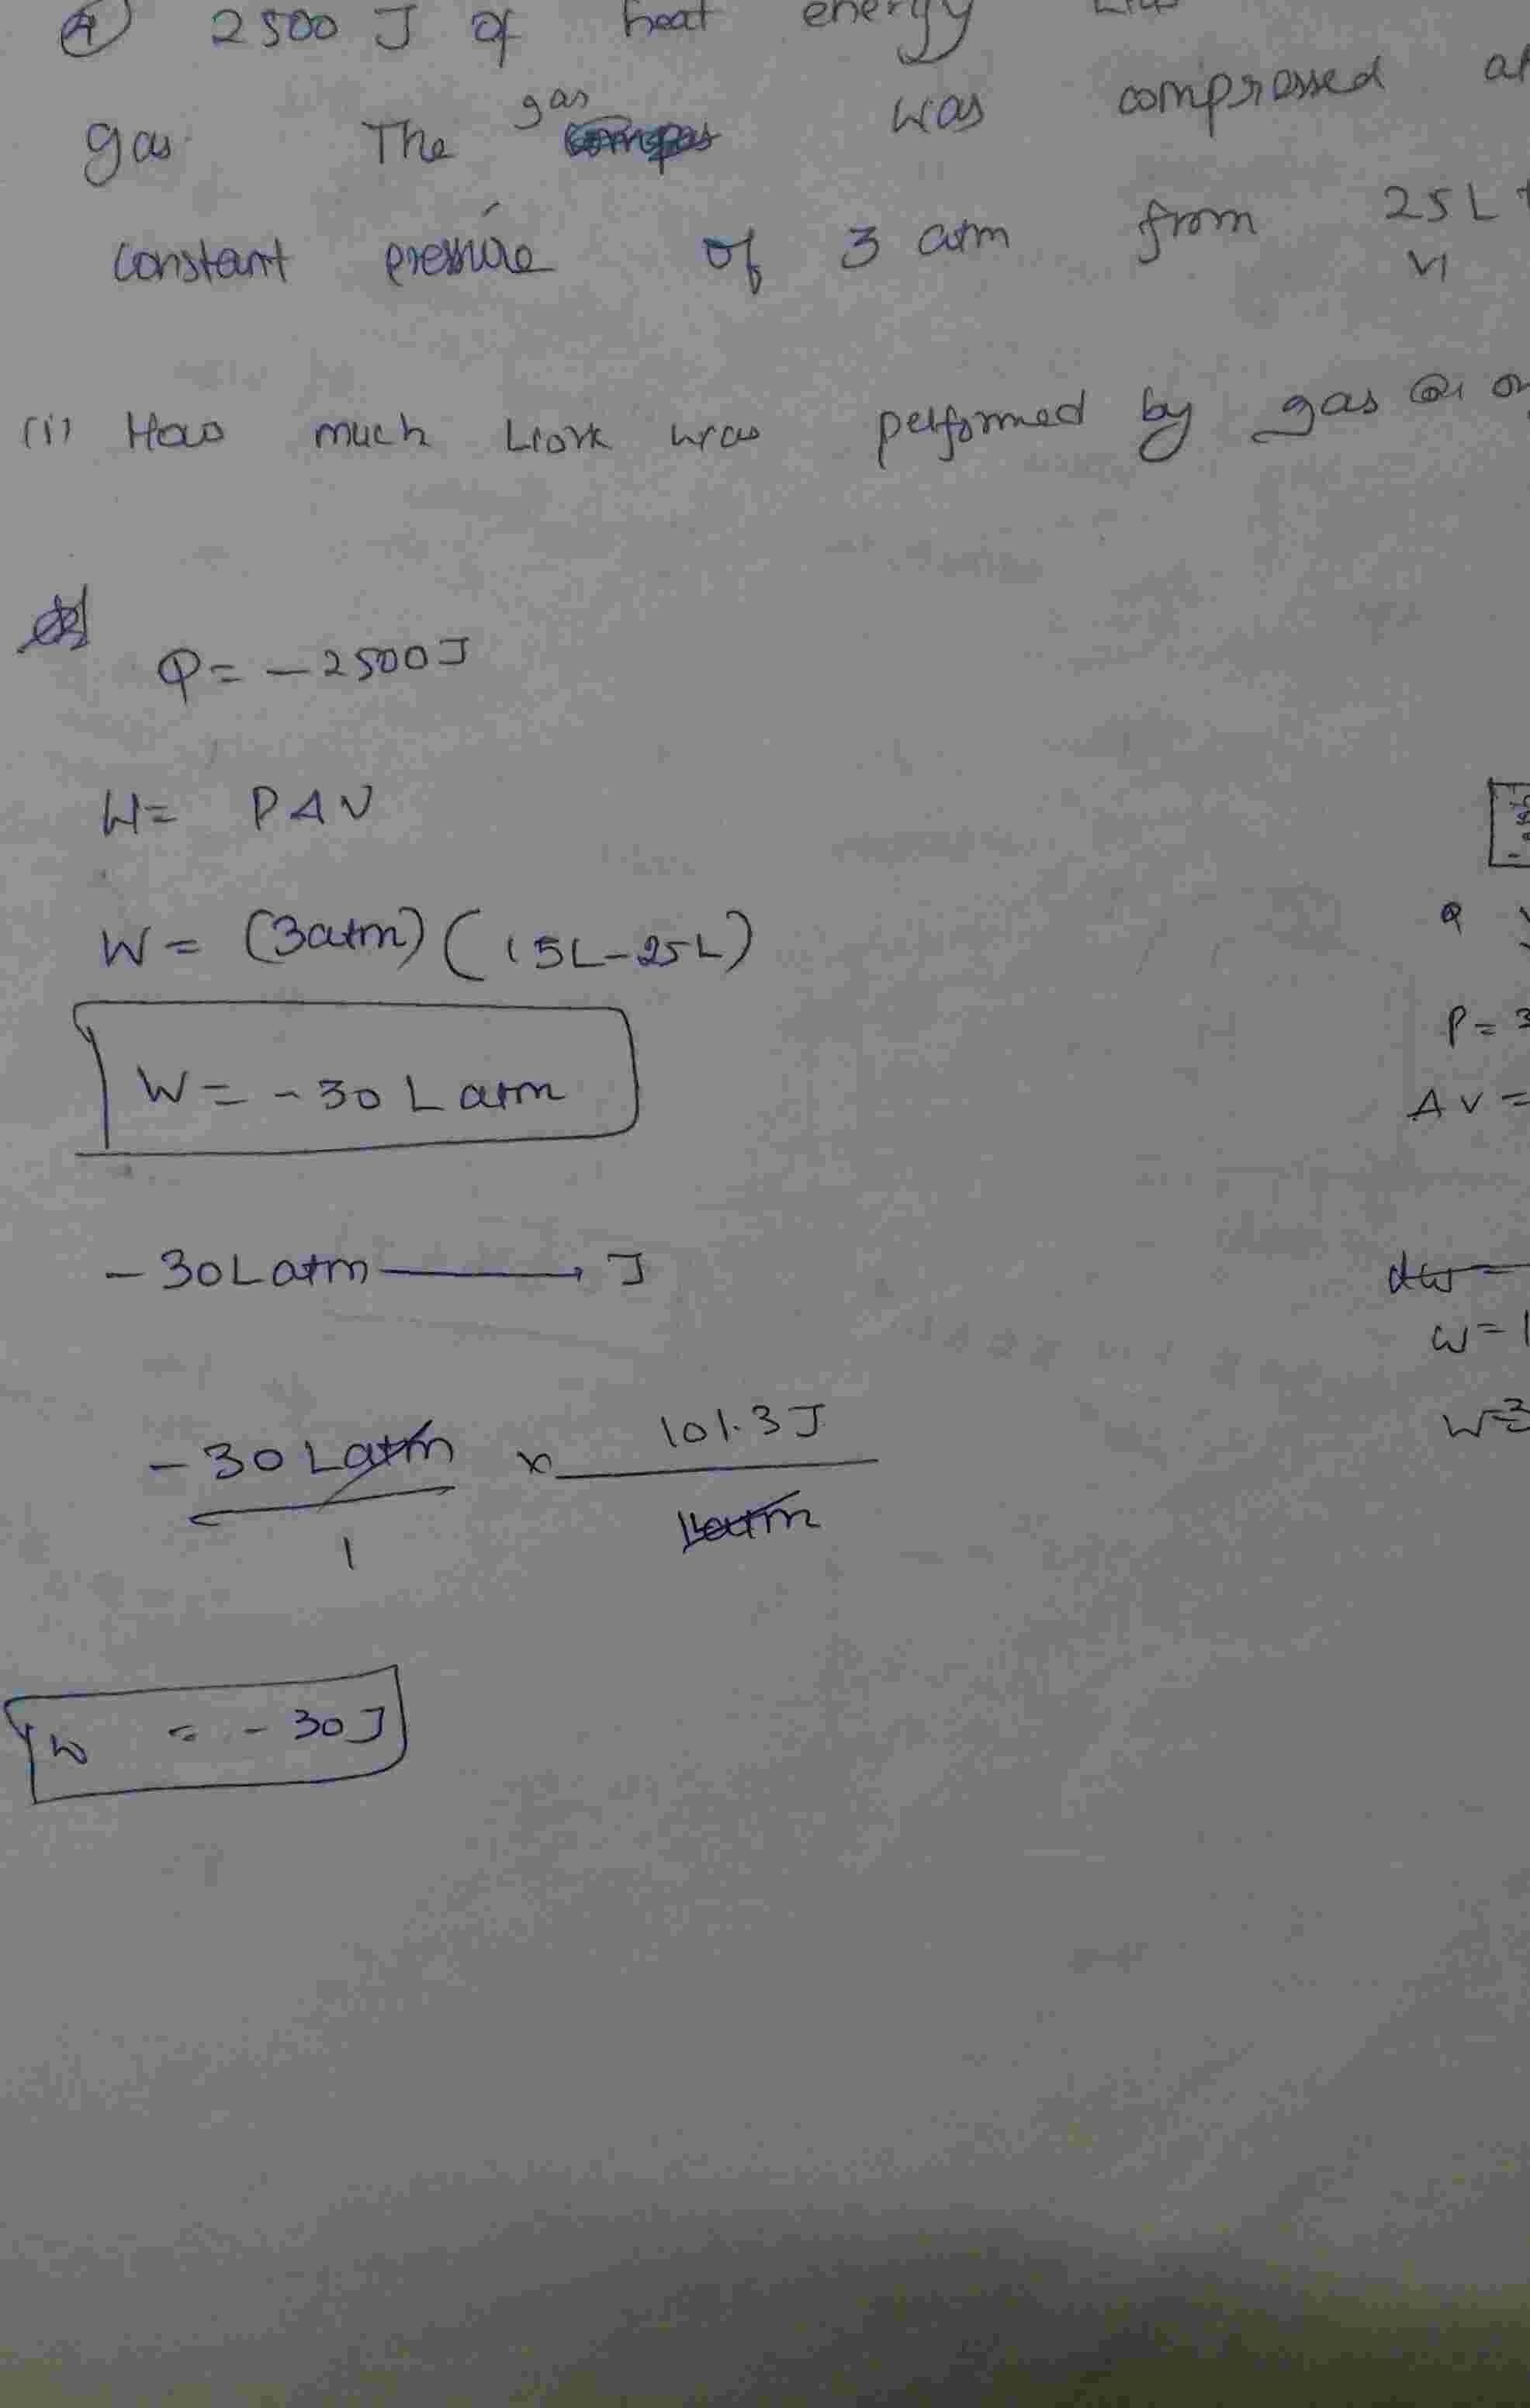 ④ 2500 J of heat energy
gas. The gas was compressed
constant pressure of 3 atm from 25L
V1
(i) How much work was performed by gas or on
Q = - 2500J
W = PΔV
W = (3atm) (15L-25L)
W = - 30 L atm
- 30L atm → J
- 30 L atm / 1 x 101.3 J / L atm
W = - 30 J
Q
P = 3
ΔV =
dw =
W =
W = 3